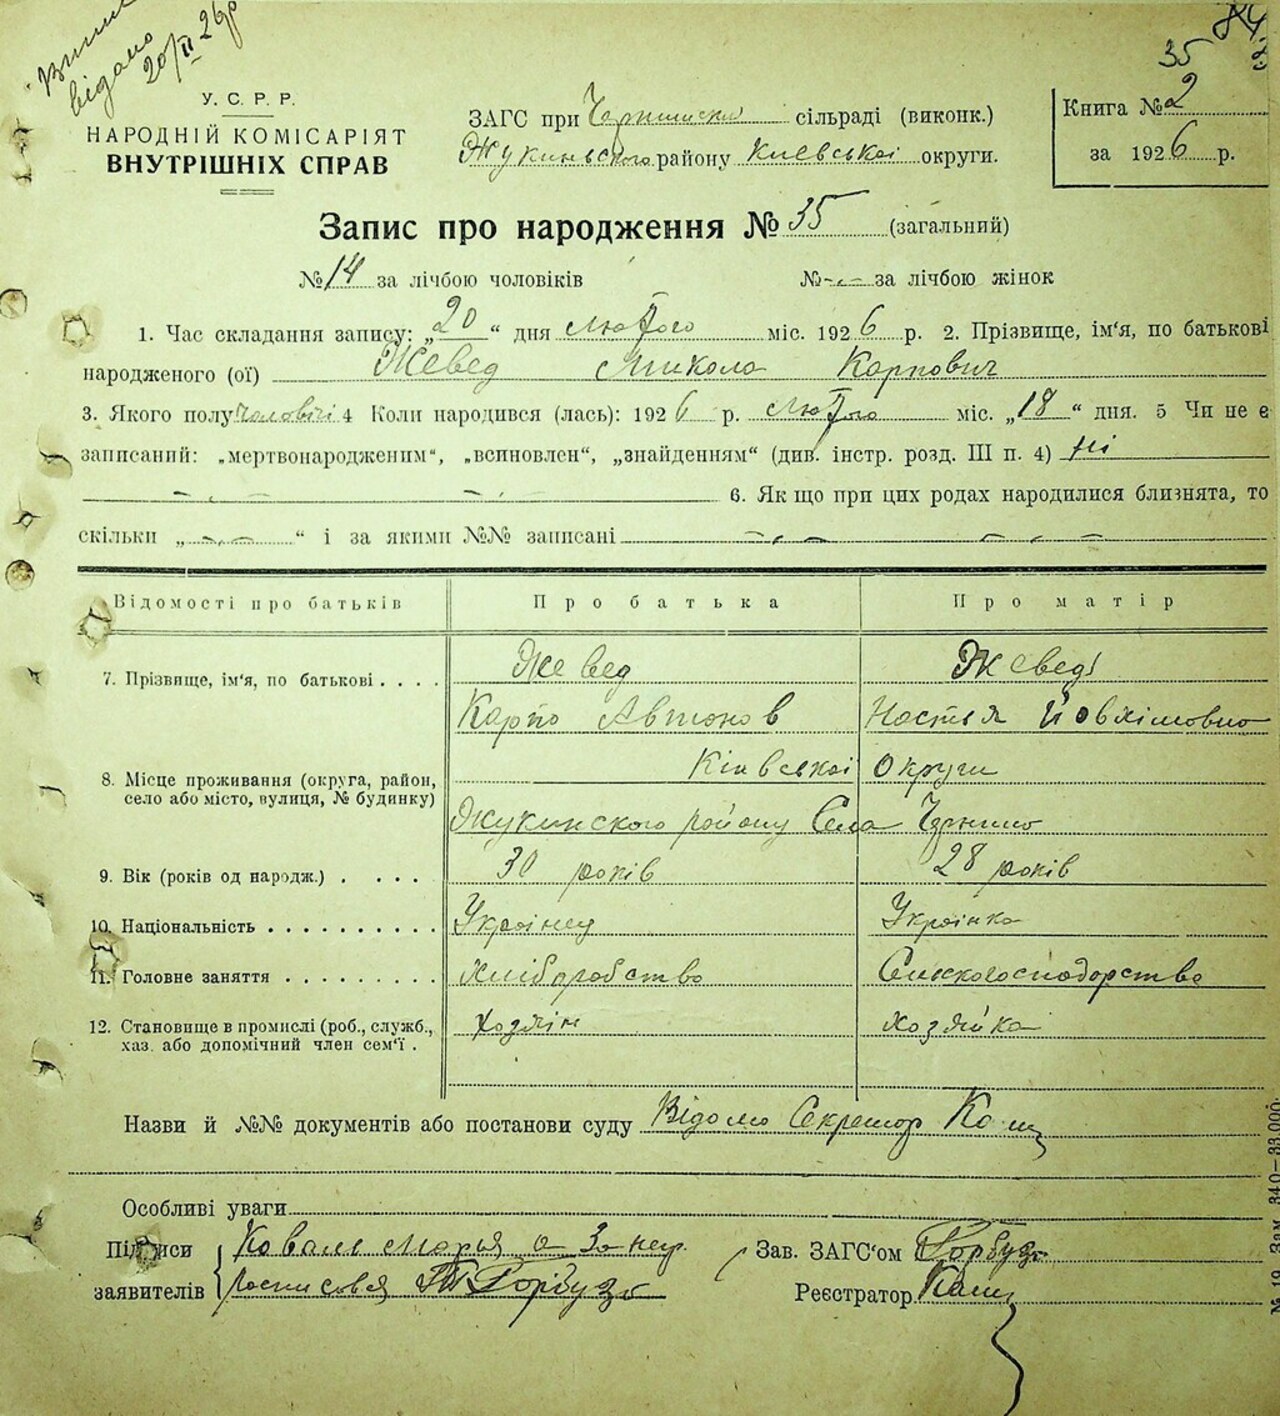 відано
20/II 26р
35
У. С. Р. Р.
НАРОДНІЙ КОМІСАРІЯТ
ВНУТРІШНІХ СПРАВ
ЗАГС при сільраді (виконк.)
району Киевської округи.
Книга № 2
за 1926 р.
Запис про народження № 35 (загальний)
№ 14 за лічбою чоловіків
№ за лічбою жінок
1. Час складання запису: „20“ дня лютого міс. 1926 р. 2. Прізвище, ім'я, по батькові
народженого (ої) Жевед Микола Карпович
3. Якого полу чоловічі 4 Коли народився (лась): 1926 р. лютого міс. „18“ дня. 5 Чи не є
записаний: „мертвонародженим“, „всиновлен“, „знайденням“ (див. інстр. розд. III п. 4) ні
6. Як що при цих родах народилися близнята, то
скільки „ “ і за якими №№ записані
Відомості про батьків
Про батька
Про матір
7. Прізвище, ім'я, по батькові . . . .
Жевед
Жевед
Карпо Автонов
Настья Йовхімовна
8. Місце проживання (округа, район,
село або місто, вулиця, № будинку)
Київської Округи
Жукинского району Села Чернино
9. Вік (років од народж.) . . . .
30 років
28 років
10. Національність . . . . . . . . . .
Украінец
Украінка
11. Головне заняття . . . . . . . . .
Хліборобство
Сильскогосподорство
12. Становище в промислі (роб., служб.,
хаз. або допомічний член сем'ї .
Хозяін
хозяйка
Назви й №№ документів або постанови суду Відомо Секретор
Особливі уваги
Підписи
заявителів
Коваль Марья а За неу
росписовся Горбузо
Зав. ЗАГС'ом Горбузо
Реєстратор
№ 19. Зам. 340—33.000.